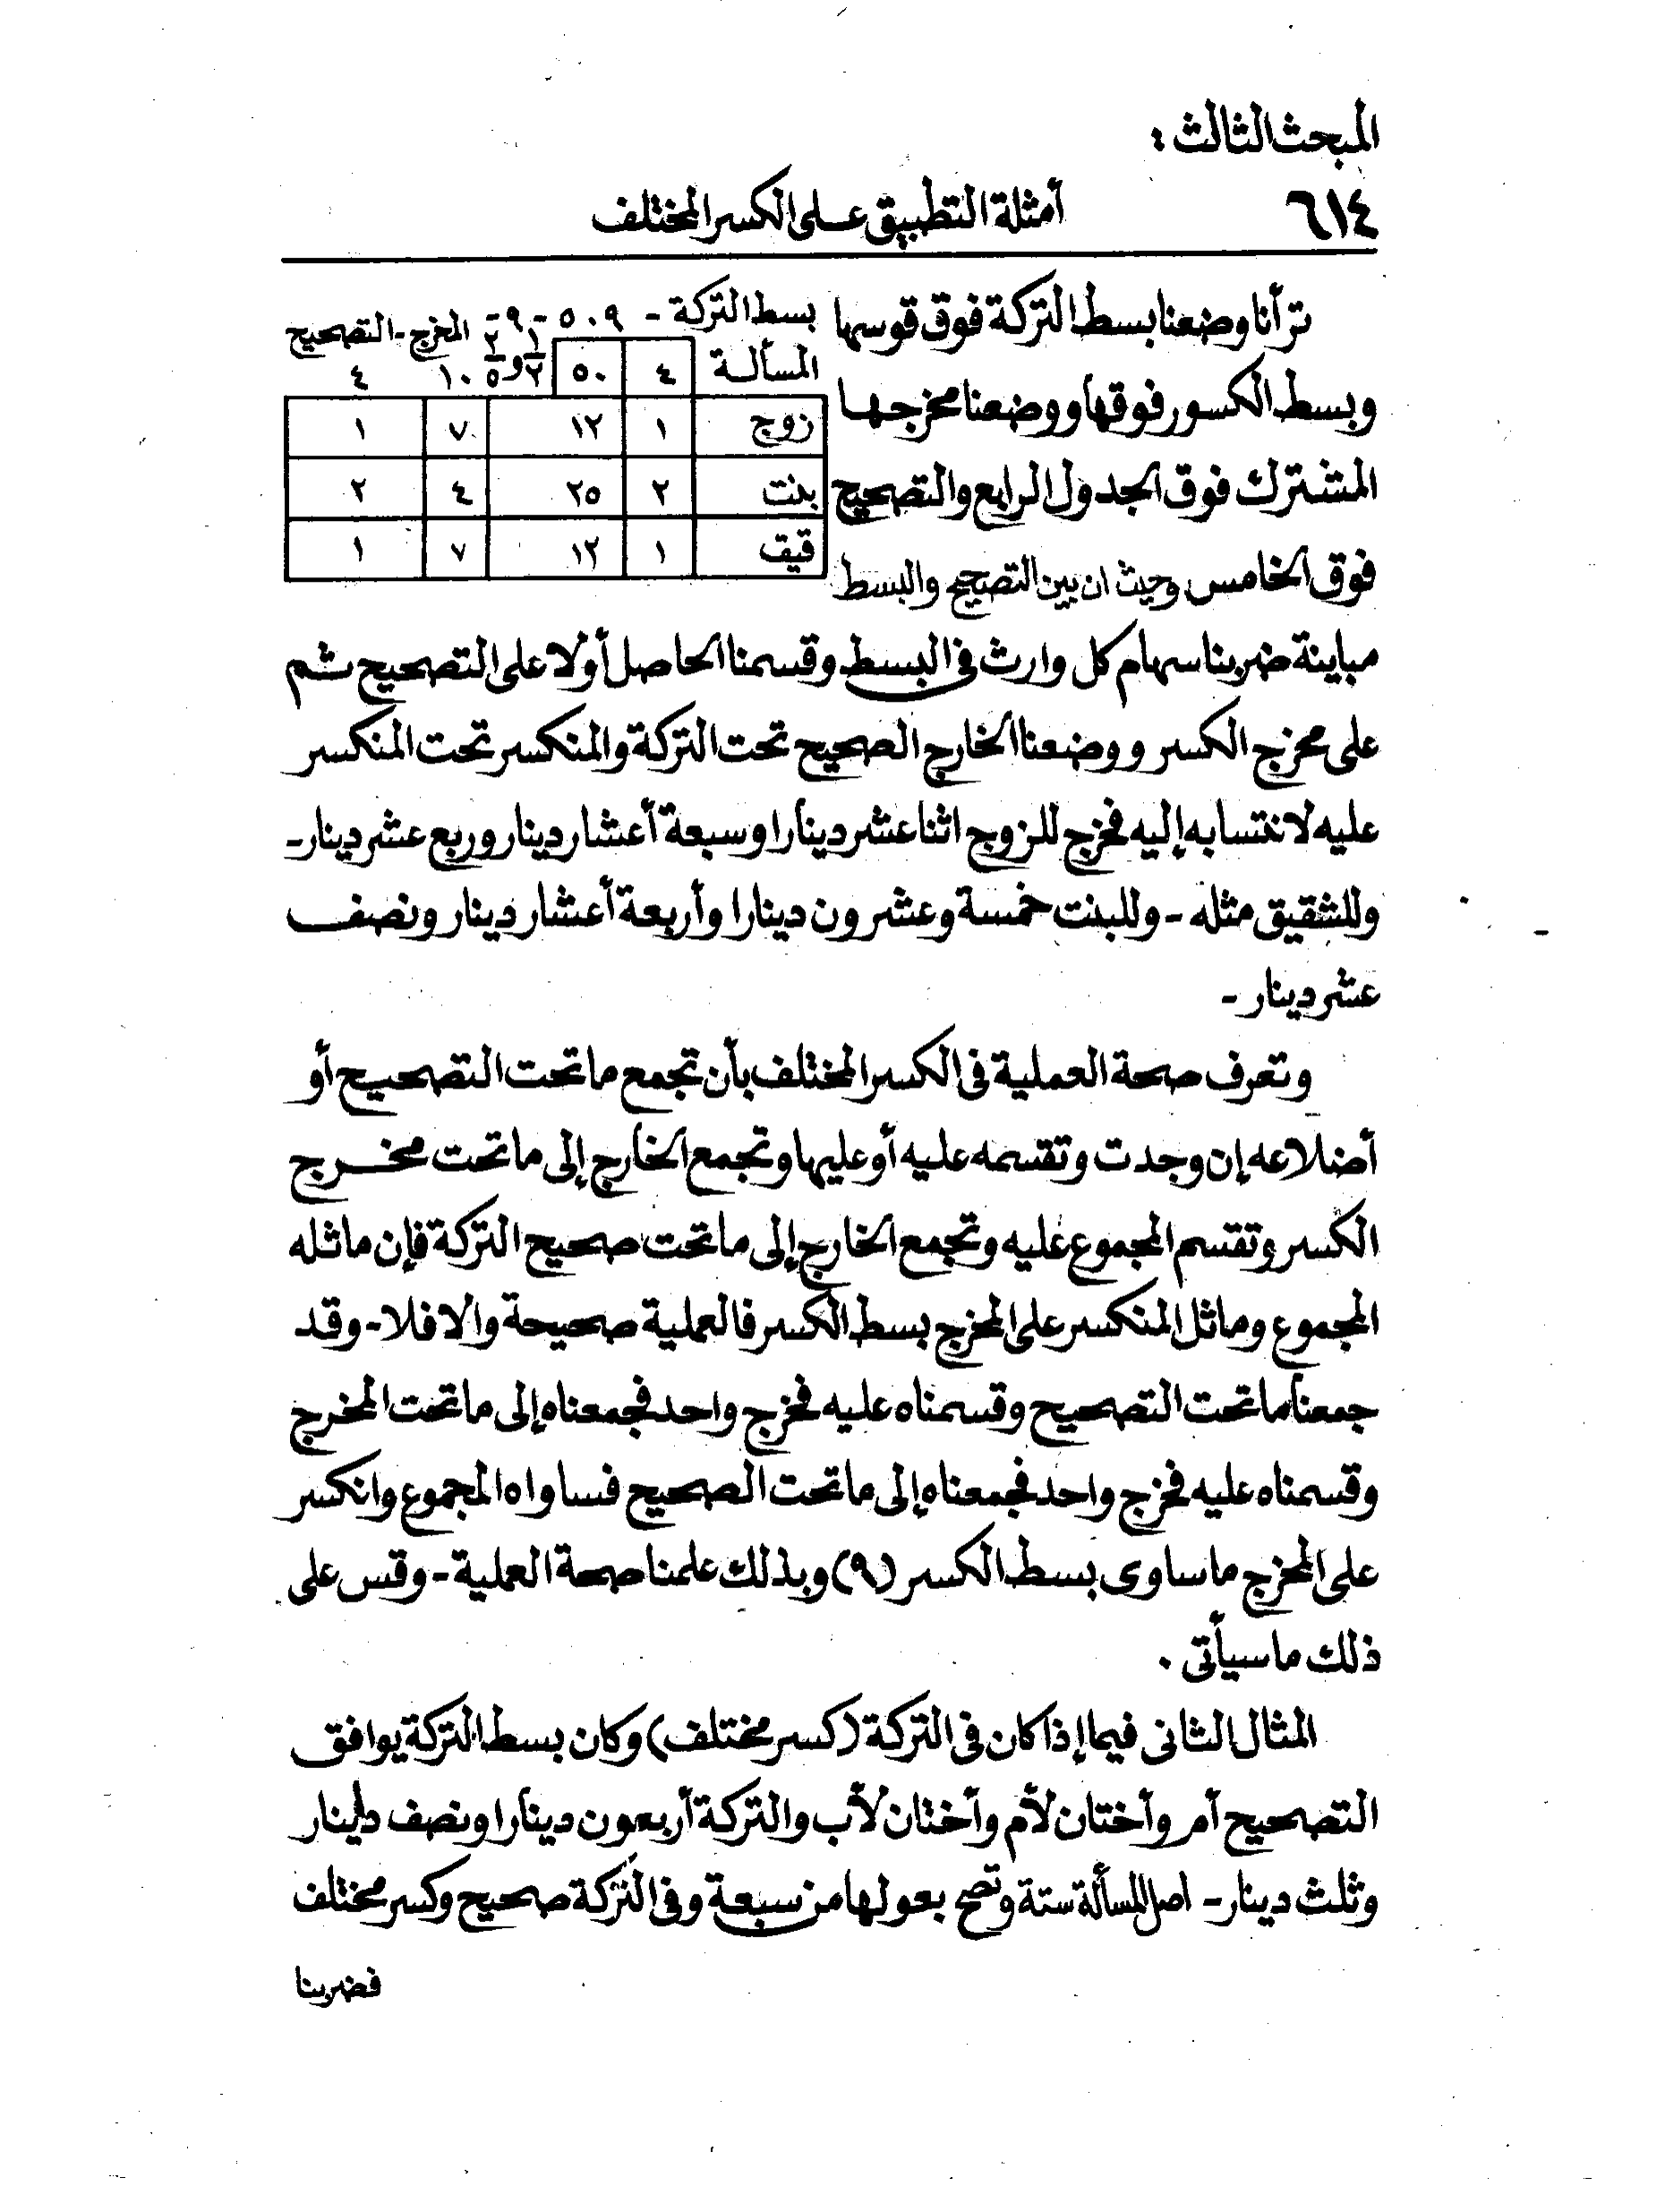 المبحث الثالث :
٦١٤ أمثلة التطبيق على الكسر المختلف
تر أنا وضعنا بسط التركة فوق قوسها
وبسط الكسور فوقها ووضعنا مخرجها
المشترك فوق الجدول الرابع والتصحيح
فوق الخامس وحيث ان بين التصحيح والبسط
بسط التركة - ٥٠٩ - ٩ - المخرج - التصحيح
المسألة ٤ ٥٠ ١/٢ و ٢/٥ ١٠ ٤
زوج ١ ١٢ ٧ ١
بنت ٢ ٢٥ ٤ ٢
قيق ١ ١٢ ٧ ١
مباينة ضربنا سهام كل وارث في البسط وقسمنا الحاصل أولا على التصحيح ثم
على مخرج الكسر ووضعنا الخارج الصحيح تحت التركة والمنكسر تحت المنكسر
عليه لانتسابه إليه فخرج للزوج اثنا عشر دينارا وسبعة أعشار دينار وربع عشر دينار -
وللشقيق مثله - وللبنت خمسة وعشرون دينارا وأربعة أعشار دينار ونصف
عشر دينار -
وتعرف صحة العملية في الكسر المختلف بأن تجمع ما تحت التصحيح أو
أضلاعه إن وجدت وتقسمه عليه أو عليها وتجمع الخارج إلى ما تحت مخرج
الكسر وتقسم المجموع عليه وتجمع الخارج إلى ما تحت صحيح التركة فإن ماثله
المجموع وماثل المنكسر على المخرج بسط الكسر فالعملية صحيحة والا فلا - وقد
جمعنا ما تحت التصحيح وقسمناه عليه فخرج واحد فجمعناه إلى ما تحت المخرج
وقسمناه عليه فخرج واحد فجمعناه إلى ما تحت الصحيح فساواه المجموع وانكسر
على المخرج ما ساوى بسط الكسر (٩) وبذلك علمنا صحة العملية - وقس على
ذلك ما سيأتى .
المثال الثانى فيما إذا كان فى التركة (كسر مختلف) وكان بسط التركة يوافق
التصحيح أم وأختان لأم وأختان لأب والتركة أربعون دينارا ونصف دينار
وثلث دينار - اصل المسألة ستة وتصح بعولها من سبعة وفى التركة صحيح وكسر مختلف
فضربنا